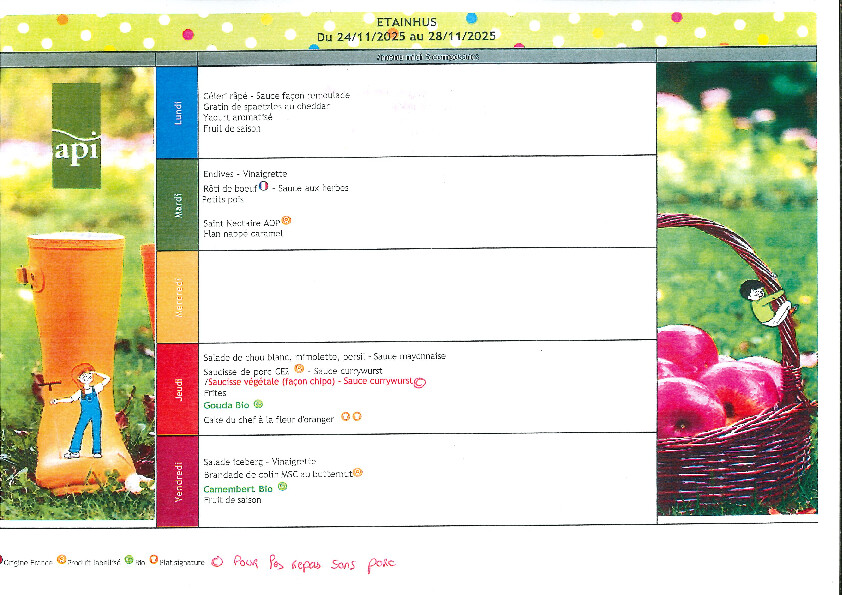 ETAINHUS
Du 24/11/2025 au 28/11/2025
Menu midi 5 composantes
api
Lundi
Céleri râpé - Sauce façon remoulade
Gratin de spaetzles au cheddar
Yaourt aromatisé
Fruit de saison
Mardi
Endives - Vinaigrette
Rôti de boeuf - Sauce aux herbes
Petits pois
Saint Nectaire AOP
Flan nappé caramel
Mercredi
Jeudi
Salade de chou blanc, mimolette, persil - Sauce mayonnaise
Saucisse de porc CE2 - Sauce currywurst
/Saucisse végétale (façon chipo) - Sauce currywurst
Frites
Gouda Bio
Cake du chef à la fleur d'oranger
Vendredi
Salade iceberg - Vinaigrette
Brandade de colin MSC au butternut
Camembert Bio
Fruit de saison
Origine France Produit labellisé Bio Plat signature Pour les repas sans porc